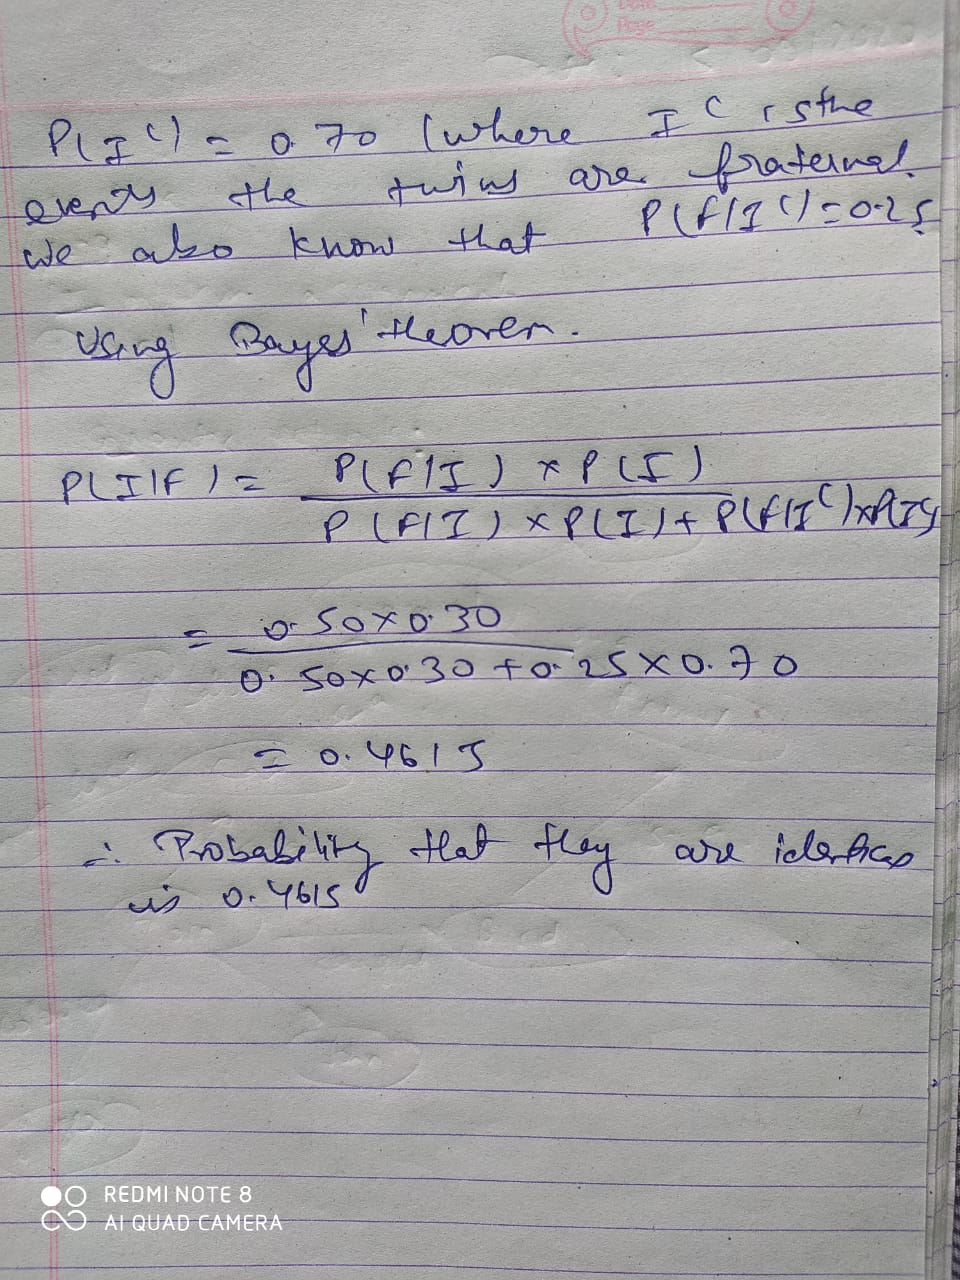 Date
Page
P(I^C) = 0.70 (where I^C is the
events the twins are fraternal.
We also know that P(F/I^C) = 0.25
Using Bayes' theorem.
P(I|F) = P(F/I) × P(I)
P(F/I) × P(I) + P(F/I^C) × P(I^C)
= 0.50×0.30
0.50×0.30 + 0.25×0.70
= 0.4615
∴ Probability that they are identical
is 0.4615
REDMI NOTE 8
AI QUAD CAMERA